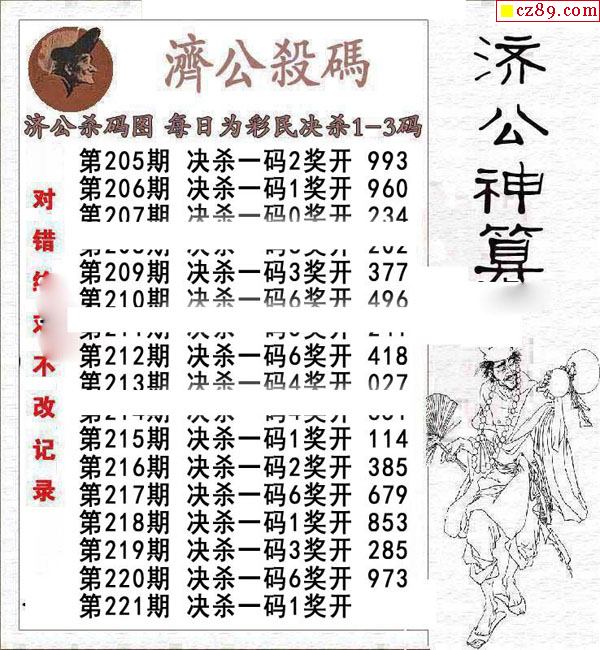 cz89.com
濟公殺碼
济公杀码图 每日为彩民决杀1-3码
第205期 决杀一码2奖开 993
第206期 决杀一码1奖开 960
第207期 决杀一码0奖开 234
第209期 决杀一码3奖开 377
第210期 决杀一码6奖开 496
第212期 决杀一码6奖开 418
第213期 决杀一码4奖开 027
第215期 决杀一码1奖开 114
第216期 决杀一码2奖开 385
第217期 决杀一码6奖开 679
第218期 决杀一码1奖开 853
第219期 决杀一码3奖开 285
第220期 决杀一码6奖开 973
第221期 决杀一码1奖开
对错 不改记录
济公神算